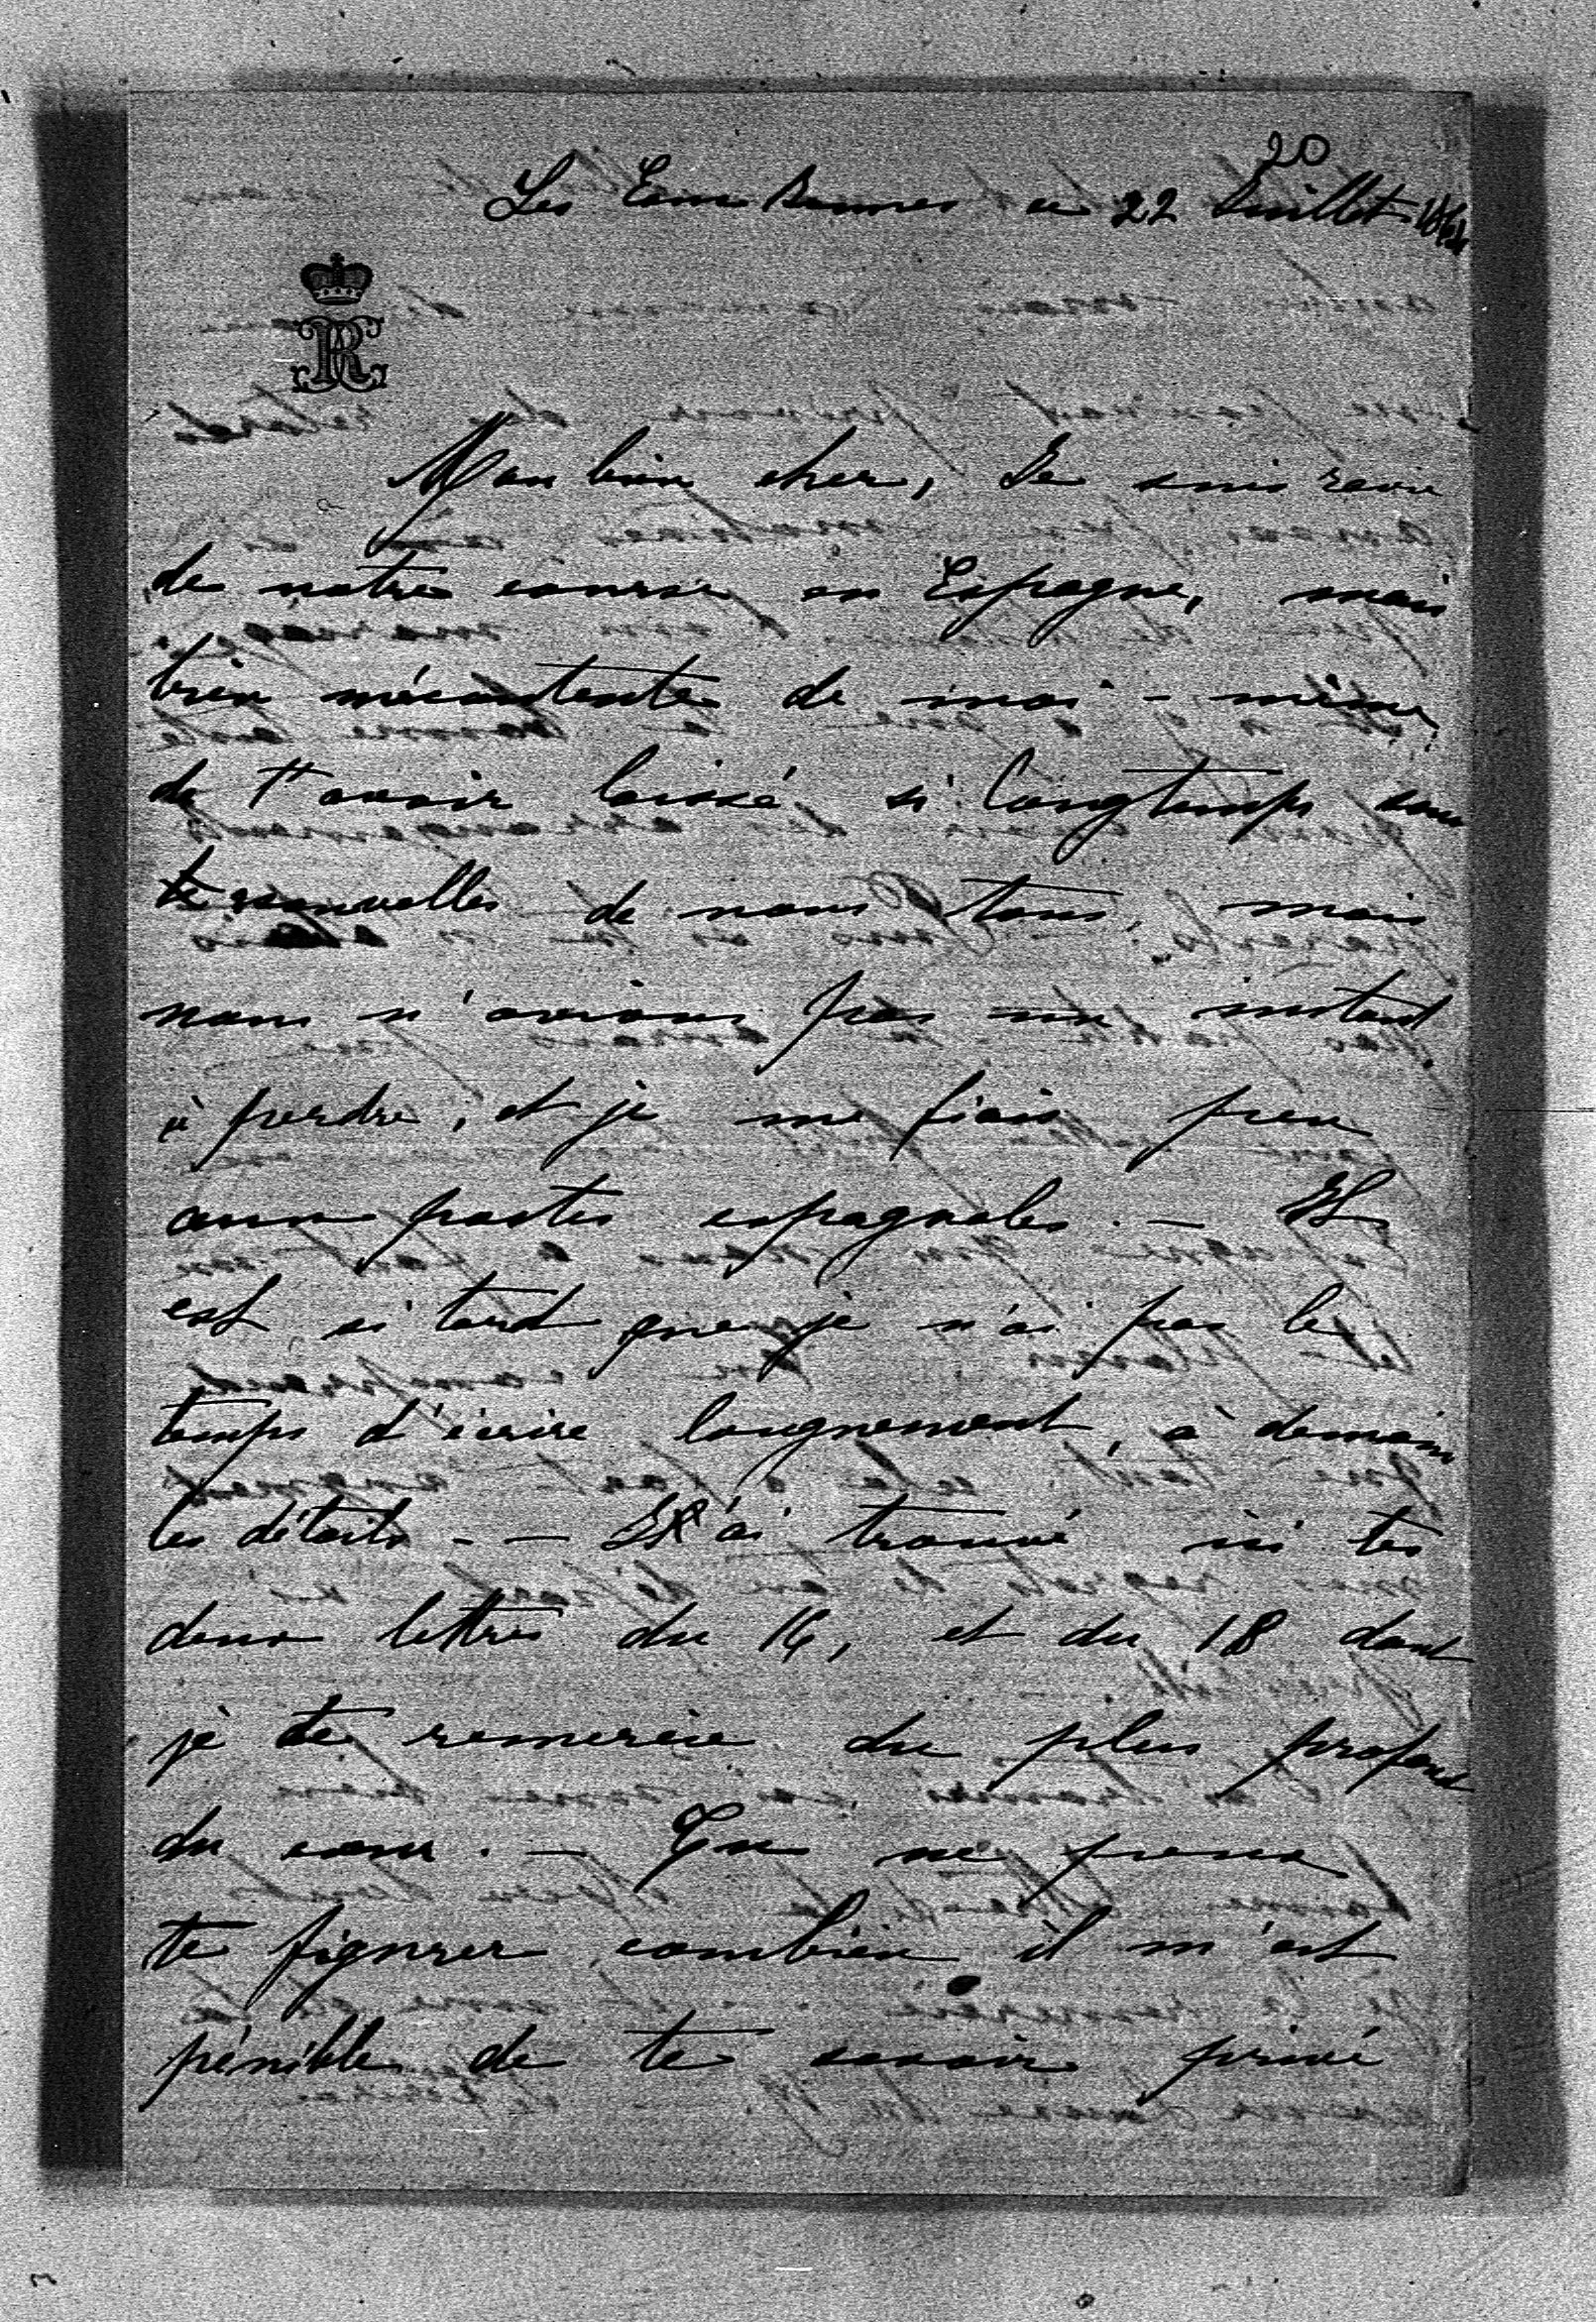 20
Les Eaux Bonnes ce 22 Juillet 1864
Mon bien cher, Je suis ravie
de notre course en Espagne, mais
bien mécontente de moi-même
de t'avoir laissé si longtemps sans
nouvelles de nous tous, mais
nous n'avions pas un instant
à perdre, et je me fiais peu
aux postes espagnoles. — Il
est si tard que je n'ai pas le
temps d'écrire longuement, à demain
les détails. — J'ai trouvé ici tes
deux lettres du 16, et du 18 dont
je te remercie du plus profond
du cœur. — Tu ne peux
te figurer combien il m'est
pénible de te savoir privé